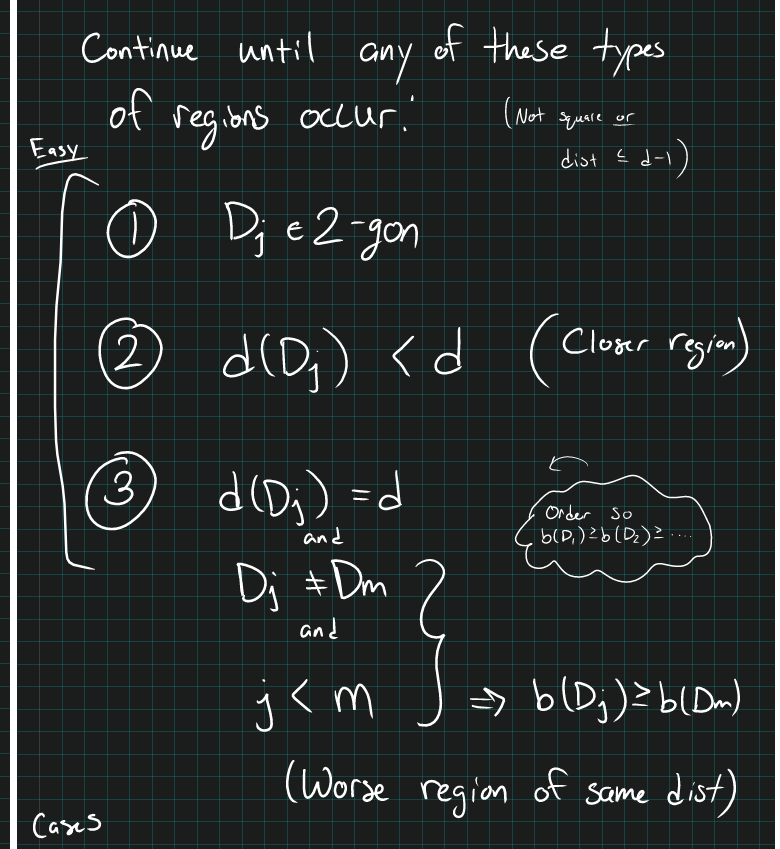 Continue until any of these types
of regions occur:
(Not square or
dist ≤ d-1)
Easy
① Dj ∈ 2-gon
② d(Dj) < d (Closer region)
③ d(Dj) = d
and
Order so
b(D₁)≥b(D₂)≥....
Dj ≠ Dm
and
j < m ⇒ b(Dj)≥b(Dm)
(Worse region of same dist)
Cases